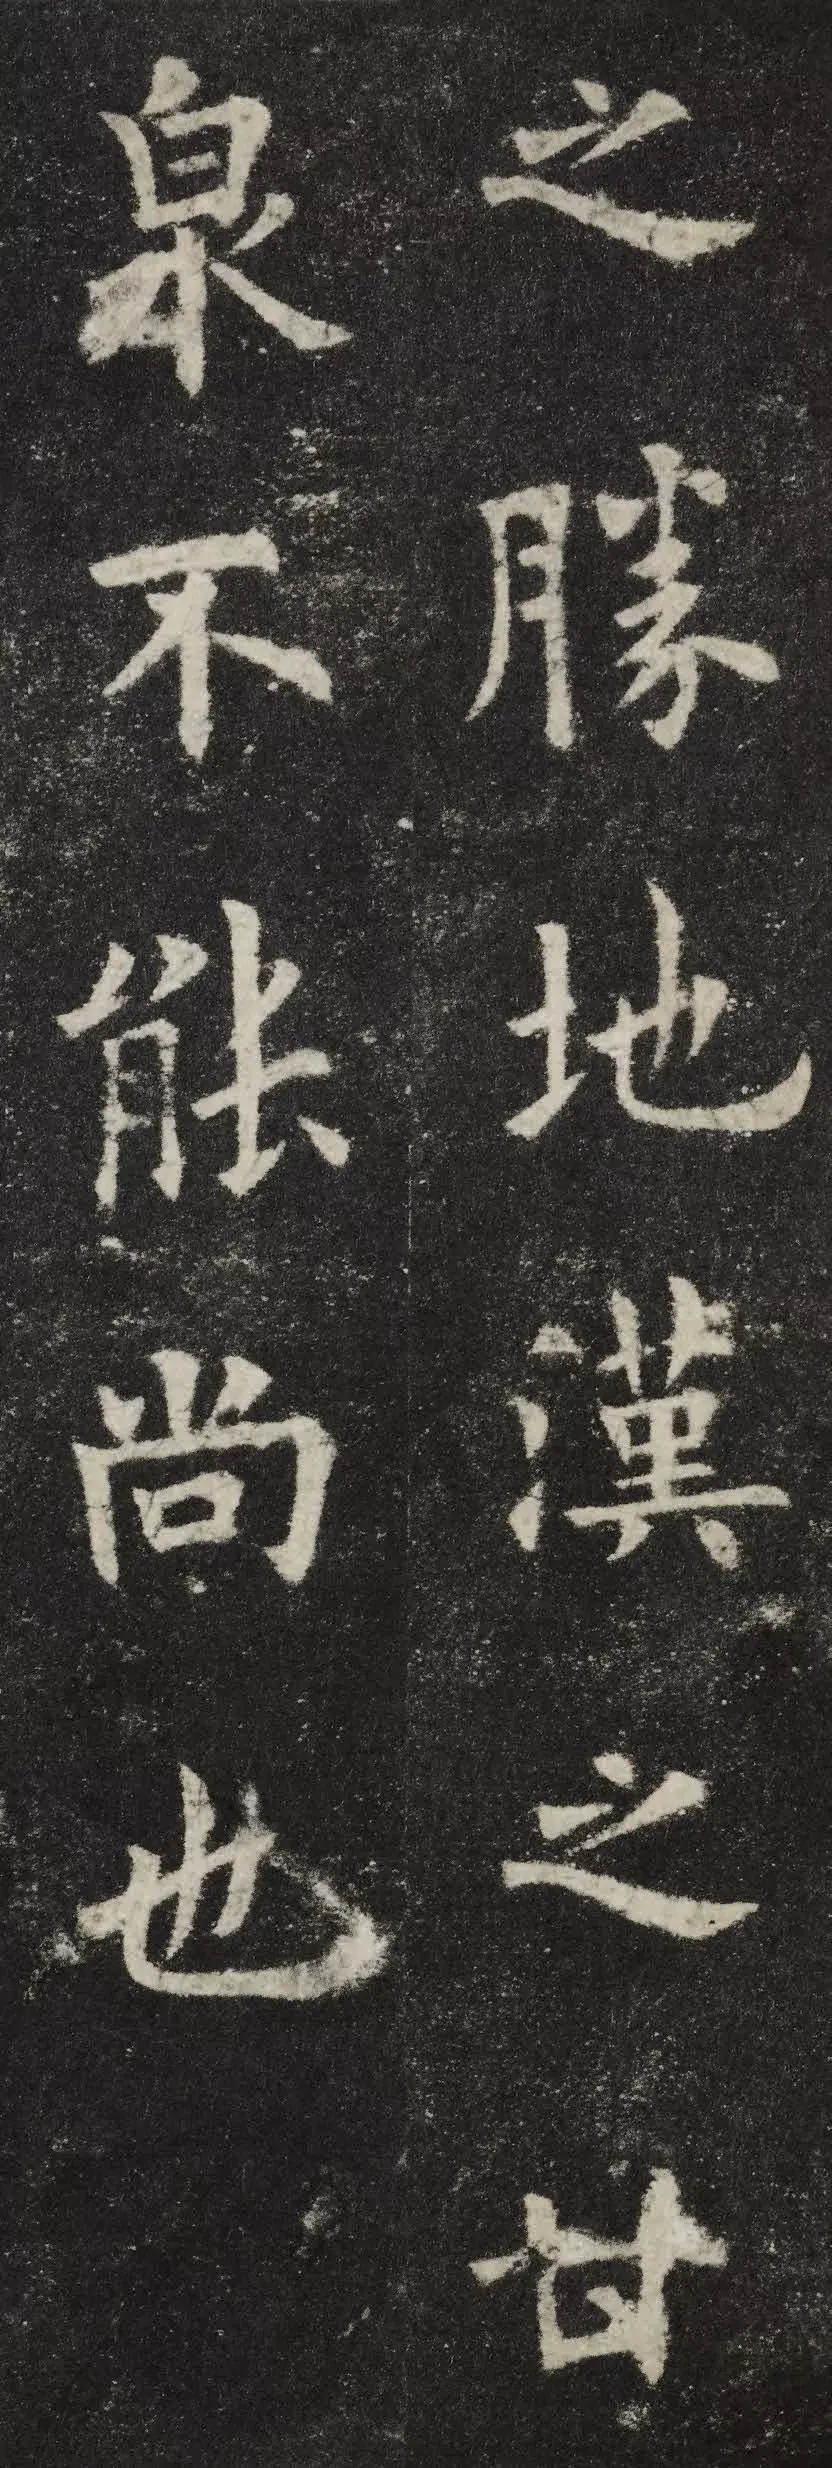 之勝地漢之甘
泉不能尚也